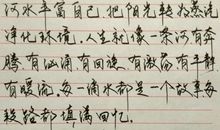 河水丰富自己,把阳光转为养洁
净化环境。人生就像一条河有奔
腾有汹涌有回旋,有激荡有平静
有暖流。每一滴水都是一个故事每
段路都填满回忆。